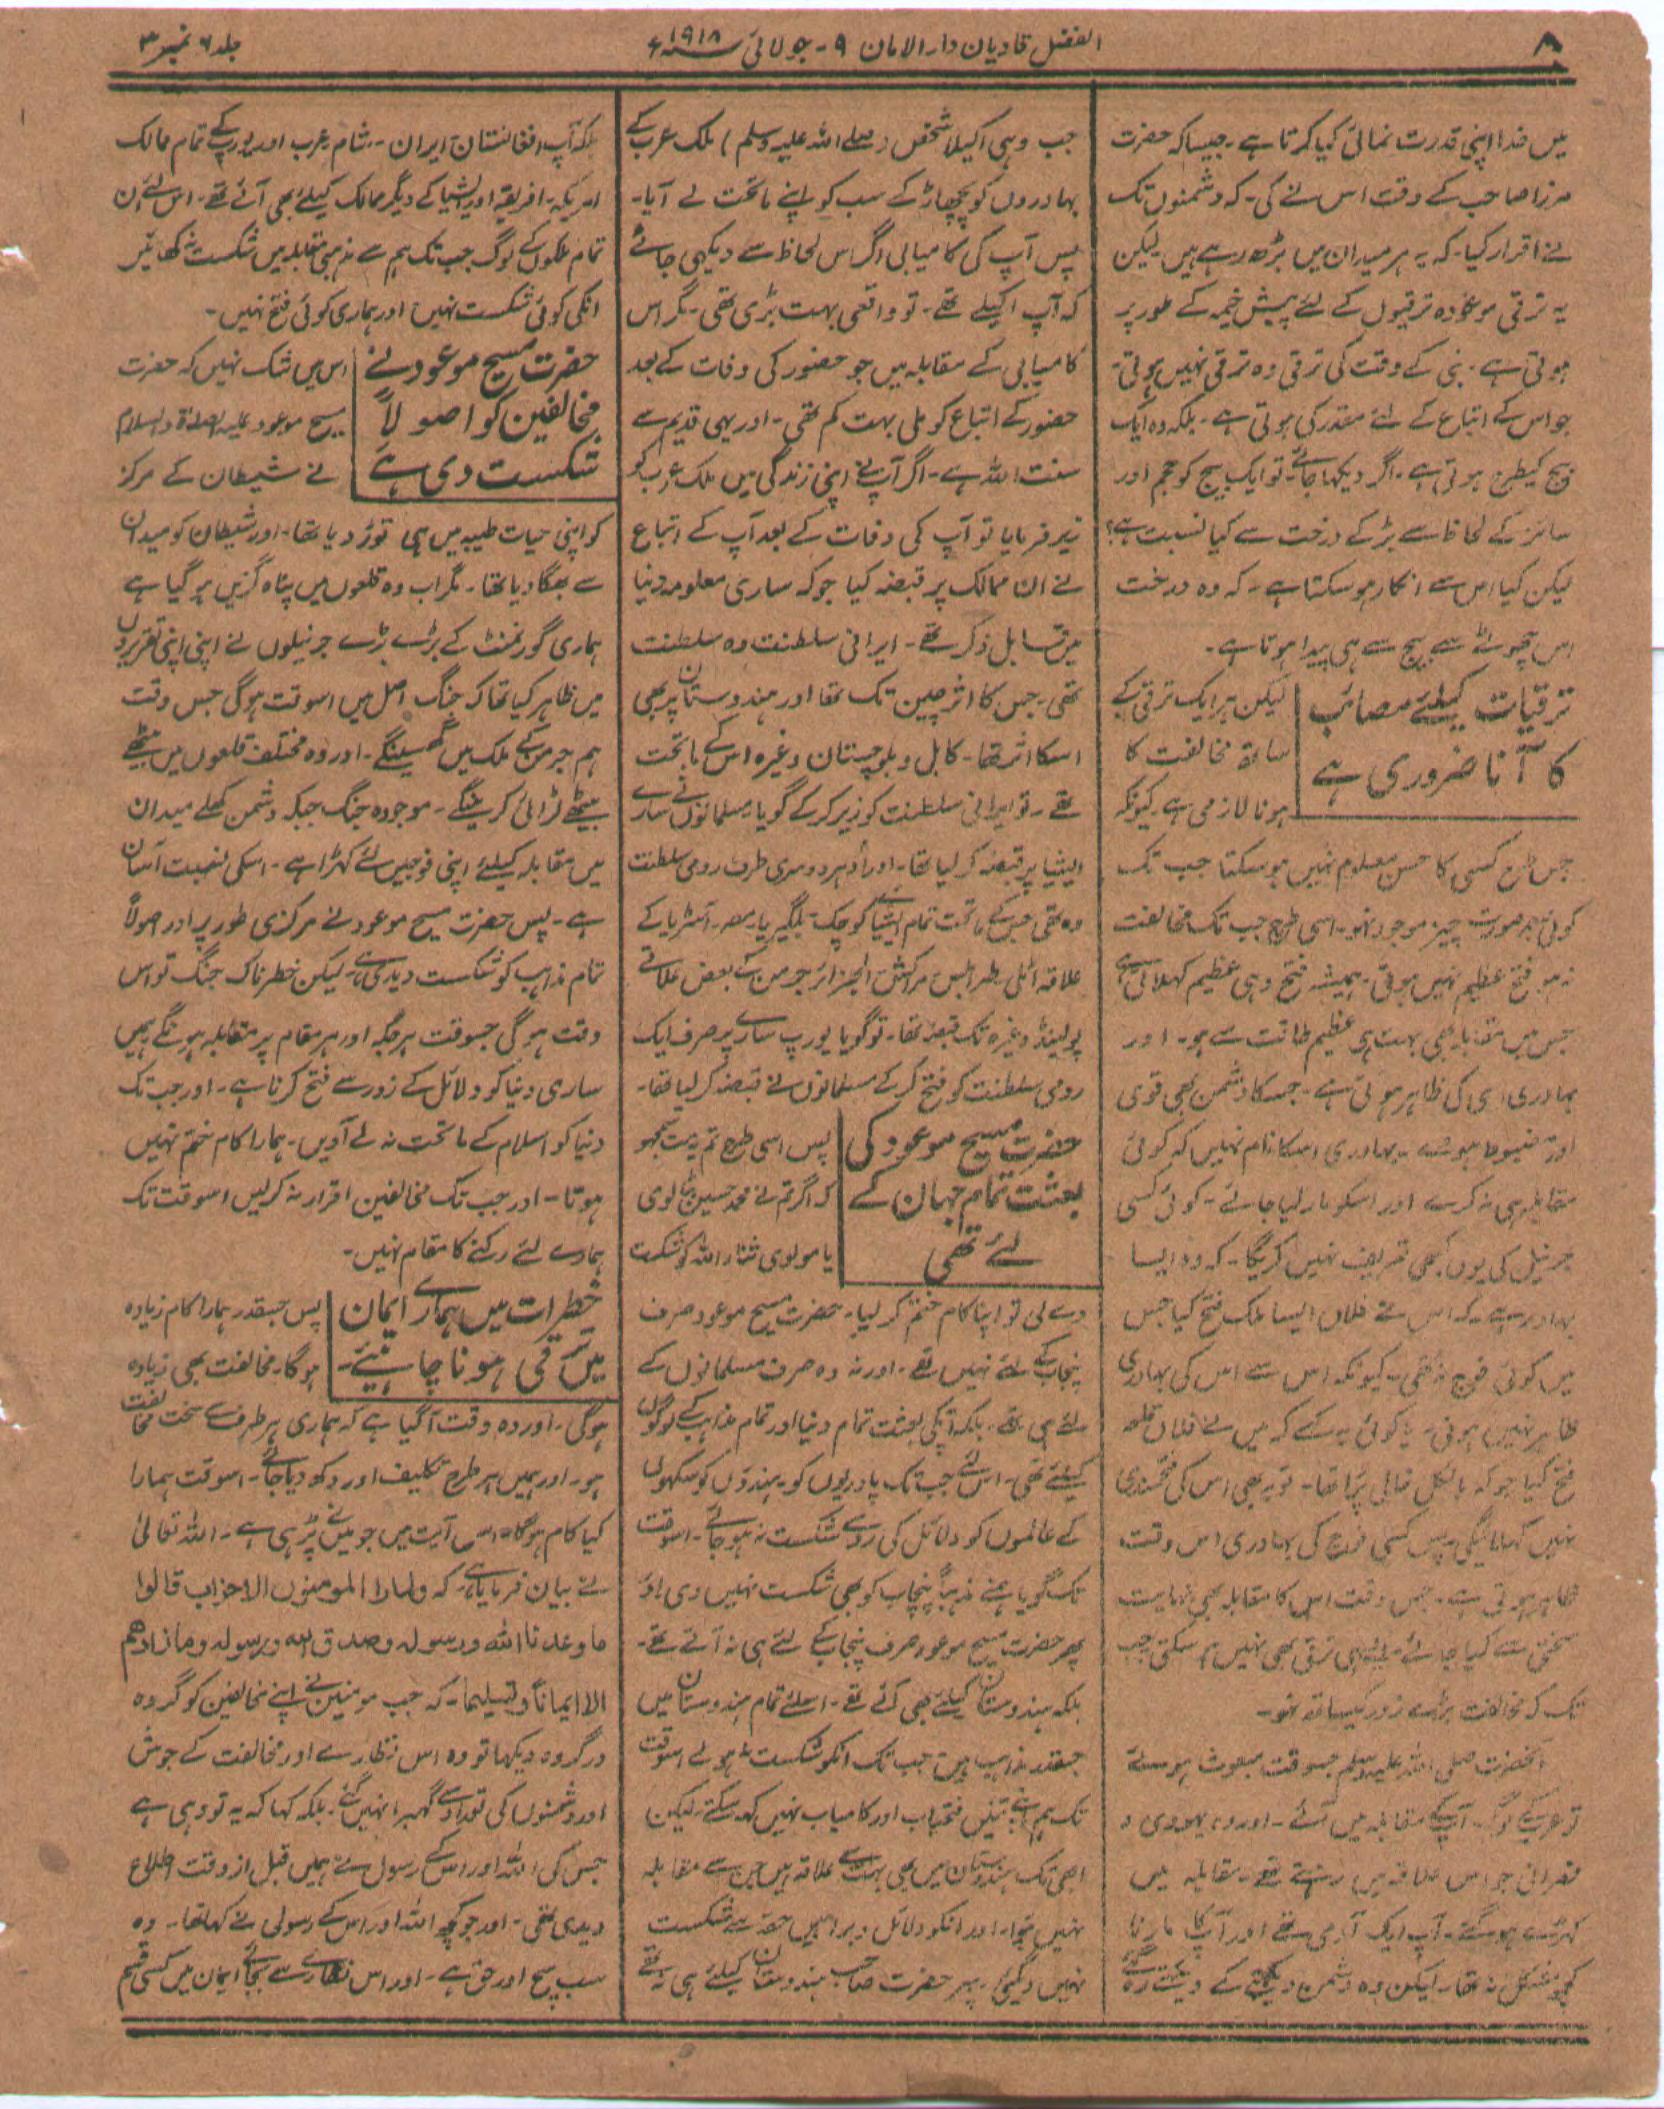 ۸
الفضل قادیان دارالامان ۹ - جولائی ۱۹۱۸ء
جلد ۶ نمبر ۳
میں خدا اپنی قدرت نمائی کیا کرتا ہے ۔ جیسا کہ حضرت
مرزا صاحب کے وقت اس نے کی ۔ کہ دشمنوں تک
نے اقرار کیا ۔ کہ یہ ہر میدان میں بڑھ رہے ہیں ۔ لیکن
یہ ترقی موعودہ ترقیوں کے لئے پیش خیمہ کے طور پر
ہوتی ہے ۔ نبی کے وقت کی ترقی وہ ترقی نہیں ہوتی ۔
جو اس کے اتباع کے لئے مقدر کی ہوتی ہے ۔ بلکہ وہ ایک
بیج کیطرح ہوتی ہے ۔ اگر دیکھا جائے ۔ تو ایک بیج کو حجم اور
سائز کے لحاظ سے بڑ کے درخت سے کیا نسبت ہے؟
لیکن کیا اس سے انکار ہو سکتا ہے ۔ کہ وہ درخت
اس چھوٹے سے بیج سے ہی پیدا ہوتا ہے ۔
ترقیات کیلئے مصائب
کا آنا ضروری ہے
لیکن ہر ایک ترقی کے
ساتھ مخالفت کا
ہونا لازمی ہے ۔ کیونکہ
جس طرح کسی کا حسن معلوم نہیں ہو سکتا جب تک
کوئی بدصورت چیز موجود نہو ۔ اسی طرح جب تک مخالفت
نہ ہو فتح عظیم نہیں ہوتی ۔ ہمیشہ فتح وہی عظیم کہلاتی ہے
جس میں مقابلہ بھی بہت ہی عظیم طاقت سے ہو ۔ اور
بہادری اسی کی ظاہر ہوتی ہے ۔ جسکا دشمن بھی قوی
اور مضبوط ہو ۔ بہادری اسکا نام نہیں کہ کوئی
مقابلہ ہی نہ کرے اور اسکو مار لیا جائے ۔ کوئی کسی
جرنیل کی یوں کبھی تعریف نہیں کریگا ۔ کہ وہ ایسا
بہادر ہے ۔ کہ اس نے فلاں ایسا ملک فتح کیا جس
میں کوئی فوج نہ تھی ۔ کیونکہ اس سے اس کی بہادری
ظاہر نہیں ہوتی ۔ یا کوئی یہ کہے کہ میں نے فلاں قلعہ
فتح کیا جو کہ بالکل خالی پڑا تھا ۔ تو یہ بھی اس کی فتحمندی
نہیں کہلائیگی ۔ پس کسی فوج کی بہادری اس وقت
ظاہر ہوتی ہے ۔ جس وقت اس کا مقابلہ بھی نہایت
سختی سے کیا جائے ۔ ایسے ہی ترقی بھی نہیں ہو سکتی جب
تک کہ مخالفت بڑے زور کیساتھ نہو ۔
آنحضرت صلی اللہ علیہ وسلم جسوقت مبعوث ہوئے
تو عرب کے لوگ آپکے مقابلہ میں آئے ۔ اور وہ یہودی و
نصرانی جو اس علاقہ میں رہتے تھے ۔ مقابلہ میں
کھڑے ہو گئے ۔ آپ ایک آدمی تھے اور آپ کا مارنا
کچھ مشکل نہ تھا ۔ لیکن وہ دشمن دیکھتے کے دیکھتے رہ گئے
جب وہی اکیلا شخص (صلے اللہ علیہ وسلم) ملک عرب کے
بہادروں کو پچھاڑ کے سب کو اپنے ماتحت لے آیا ۔
پس آپ کی کامیابی اگر اس لحاظ سے دیکھی جائے
کہ آپ اکیلے تھے ۔ تو واقعی بہت بڑی تھی ۔ مگر اس
کامیابی کے مقابلہ میں جو حضور کی وفات کے بعد
حضور کے اتباع کو ملی بہت کم تھی ۔ اور یہی قدیم سے
سنت اللہ ہے ۔ اگر آپ نے اپنی زندگی میں ملک عرب کو
زیر فرمایا تو آپ کی وفات کے بعد آپ کے اتباع
نے ان ممالک پر قبضہ کیا جو کہ ساری معلومہ دنیا
میں قابل ذکر تھے ۔ ایرانی سلطنت وہ سلطنت
تھی ۔ جس کا اثر چین تک تھا اور ہندوستان پر بھی
اسکا اثر تھا ۔ کابل و بلوچستان وغیرہ اس کے ماتحت
تھے ۔ تو ایرانی سلطنت کو زیر کر کے گویا مسلمانوں نے سارے
ایشیا پر قبضہ کر لیا تھا ۔ اور اُدہر دوسری طرف رومی سلطنت
وہ تھی جس کے ماتحت تمام ایشیائے کوچک ۔ بلگیریا ۔ مصر ۔ آسٹریا کے
علاقہ اٹلی ۔ طرابلس ۔ مراکش ۔ الجزائر جرمن کے بعض علاقے
پولینڈ وغیرہ تک قبضہ تھا ۔ تو گویا یورپ سارے پر صرف ایک
رومی سلطنت کو فتح کر کے مسلمانوں نے قبضہ کر لیا تھا ۔
حضرت مسیح موعود کی
بعثت تمام جہان کے
لئے تھی
پس اسی طرح تم یہ مت سمجھو
کہ اگر تم نے محمد حسین بٹالوی
یا مولوی ثناء اللہ کو شکست
دے لی تو اپنا کام ختم کر لیا ۔ حضرت مسیح موعود صرف
پنجاب کے لئے نہیں تھے ۔ اور نہ وہ صرف مسلمانوں کے
لئے ہی تھے ۔ بلکہ آپکی بعثت تمام دنیا اور تمام مذاہب کے لوگوں
کیلئے تھی ۔ اس لئے جب تک پادریوں کو ۔ ہندوؤں کو سکھوں
کے عالموں کو دلائل کی رو سے شکست نہ ہو جائے ۔ اسوقت
تک گویا ہمنے مذہباً پنجاب کو بھی شکست نہیں دی ۔ اور
پھر حضرت مسیح موعود صرف پنجاب کے لئے ہی نہ آئے تھے ۔
بلکہ ہندوستان کیلئے بھی آئے تھے ۔ اسلئے تمام ہندوستان میں
جسقدر مذاہب ہیں جب تک انکو شکست نہ ہولے اسوقت
تک ہم اپنے تئیں فتحیاب اور کامیاب نہیں کہہ سکتے ۔ لیکن
ابھی تک ہندوستان میں بھی بہت سے علاقہ ہیں جن سے مقابلہ
نہیں ہوا ۔ اور انکو دلائل و براہین حقہ سے شکست
نہیں دیگئی ۔ پھر حضرت صاحب ہندوستان کیلئے ہی نہ تھے
بلکہ آپ افغانستان ایران ۔ شام عرب اور یورپ کے تمام ممالک
امریکہ ۔ افریقہ اور ایشیا کے دیگر ممالک کیلئے بھی آئے تھے ۔ اس لئے ان
تمام ملکوں کے لوگ جب تک ہم سے مذہبی مقابلہ میں شکست نہ کھائیں
انکی کوئی شکست نہیں اور ہماری کوئی فتح نہیں ۔
حضرت مسیح موعود نے
مخالفین کو اصولاً
شکست دی ہے
اس میں شک نہیں کہ حضرت
مسیح موعود علیہ الصلوٰۃ والسلام
نے شیطان کے مرکز
کو اپنی حیات طیبہ میں ہی توڑ دیا تھا ۔ اور شیطان کو میدان
سے بھگا دیا تھا ۔ مگر اب وہ قلعوں میں پناہ گزین ہو گیا ہے
ہماری گورنمنٹ کے بڑے بڑے جرنیلوں نے اپنی اپنی تقریروں
میں ظاہر کیا تھا کہ جنگ اصل میں اسوقت ہوگی جس وقت
ہم جرمن کے ملک میں گھسینگے ۔ اور وہ مختلف قلعوں میں بیٹھے
بیٹھے لڑائی کرینگے ۔ موجودہ جنگ جبکہ دشمن کھلے میدان
میں مقابلہ کیلئے اپنی فوجیں لئے کھڑا ہے ۔ اسکی نسبت آسان
ہے ۔ پس حضرت مسیح موعود نے مرکزی طور پر اور اصولاً
تمام مذاہب کو شکست دیدی ہے ۔ لیکن خطرناک جنگ تو اس
وقت ہوگی جسوقت ہر جگہ اور ہر مقام پر مقابلہ ہونگے ہمیں
ساری دنیا کو دلائل کے زور سے فتح کرنا ہے ۔ اور جب تک
دنیا کو اسلام کے ماتحت نہ لے آویں ۔ ہمارا کام ختم نہیں
ہوتا ۔ اور جب تک مخالفین اقرار نہ کرلیں اسوقت تک
ہمارے لئے رکنے کا مقام نہیں ۔
خطرات میں ہمارے ایمان
میں ترقی ہونا چاہئیے ۔
پس جسقدر ہمارا کام زیادہ
ہوگا ۔ مخالفت بھی زیادہ
ہوگی ۔ اور وہ وقت آگیا ہے کہ ہماری ہر طرف سے سخت مخالفت
ہو ۔ اور ہمیں ہر طرح تکلیف اور دکھ دیا جائے ۔ اسوقت ہمارا
کیا کام ہوگا ۔ اس آیت میں جو میں نے پڑہی ہے ۔ اللہ تعالیٰ
نے بیان فرمایا ہے ۔ کہ ولما را المومنون الاحزاب قالوا
ما وعدنا اللہ ورسولہ وصدق اللہ ورسولہ وما زادھم
الا ایمانا وتسلیما ۔ کہ جب مومنین نے اپنے مخالفین کو گروہ
در گروہ دیکھا تو وہ اس نظارے اور مخالفت کے جوش
اور دشمنوں کی تعداد سے گھبرا نہیں گئے ۔ بلکہ کہا کہ یہ تو وہی ہے
جس کی اللہ اور اس کے رسول نے ہمیں قبل از وقت اطلاع
دیدی تھی ۔ اور جو کچھ اللہ اور اس کے رسول نے کہا تھا ۔ وہ
سب سچ اور حق ہے ۔ اور اس نظارے سے بجائے ایمان میں کسی قسم